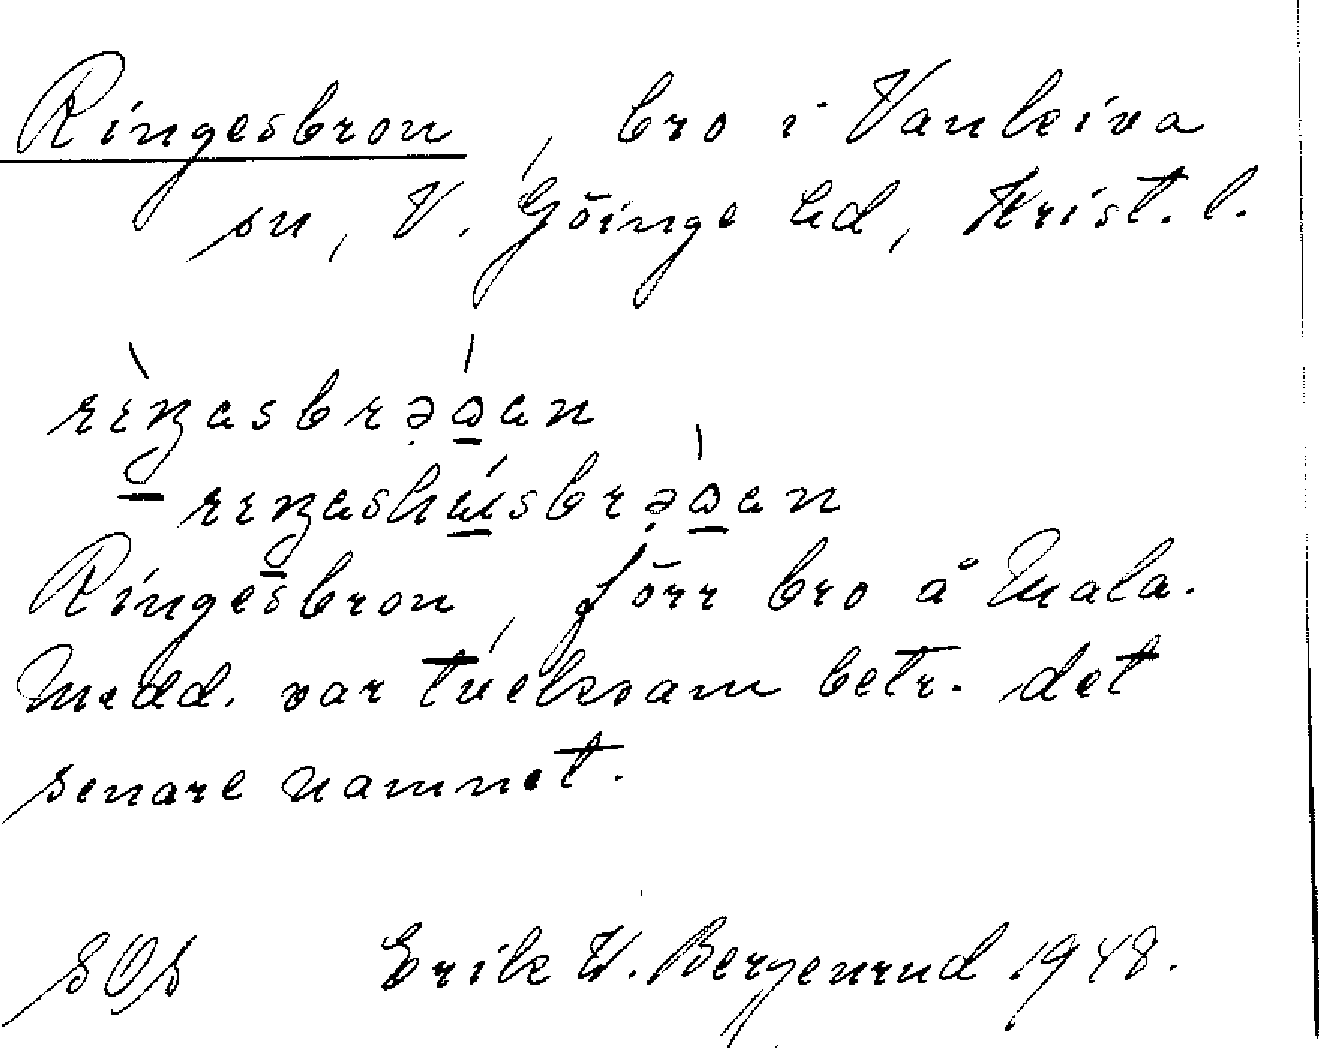 Ringesbron, bro i Vankiva
sn, V. Göinge hd, Krist. l.
Ringesbron, förr bro å Mala.
Medd. var tveksam betr. det
senare namnet.
SOS Erik W. Bergenrud 1948.